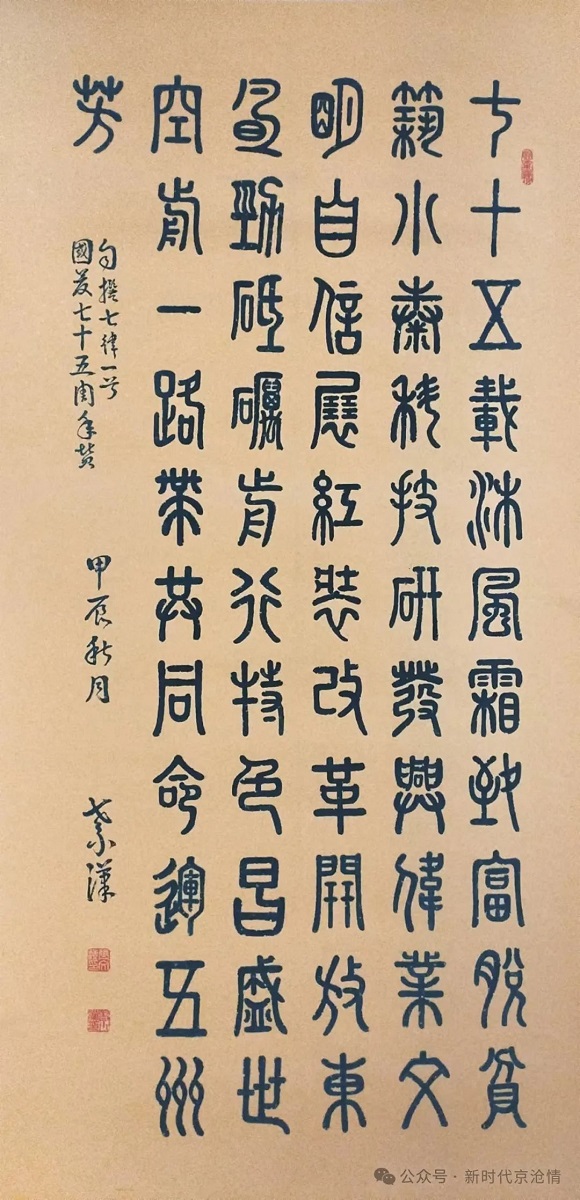 七十五載沐風霜致富脫貧
築小康科技研發興偉業文
明自信展紅裝改革開放東
風勁砥礪前行特色昌盛世
空前一路帶共同命運五州
芳
自撰七律一首
國慶七十五周年贊
甲辰秋月
公众号 · 新时代京沧情